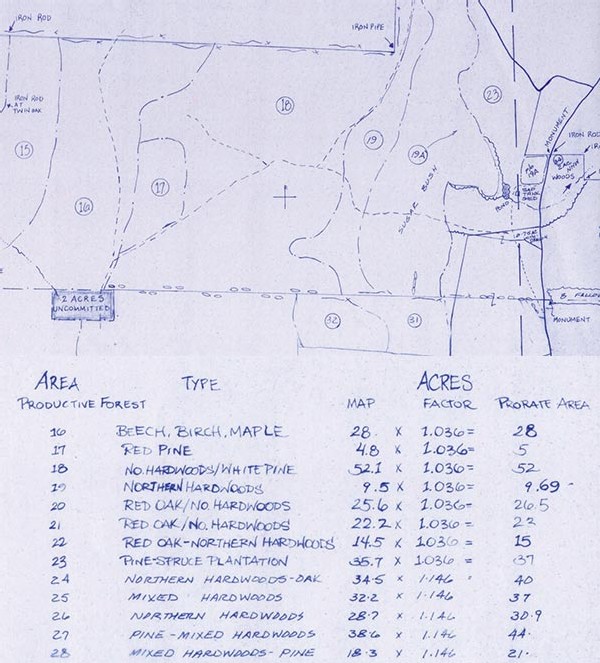 IRON ROD
IRON PIPE
IRON ROD
AT
TWIN OAK
15
16
17
18
19
19A
23
SUGAR BUSH
MONUMENT
IRON ROD
WOODS
POND
SHED
2 ACRES
UNCOMMITTED
32
31
MONUMENT
AREA TYPE ACRES
PRODUCTIVE FOREST MAP FACTOR PRORATE AREA
16 BEECH, BIRCH, MAPLE 28. X 1.036= 28
17 RED PINE 4.8 X 1.036= 5
18 NO. HARDWOODS/WHITE PINE 52.1 X 1.036= 52
19 NORTHERN HARDWOODS 9.5 X 1.036= 9.69
20 RED OAK/NO. HARDWOODS 25.6 X 1.036= 26.5
21 RED OAK/NO. HARDWOODS 22.2 X 1.036= 22
22 RED OAK-NORTHERN HARDWOODS 14.5 X 1.036= 15
23 PINE-SPRUCE PLANTATION 35.7 X 1.036= 37
24 NORTHERN HARDWOODS-OAK 34.5 X 1.146 40
25 MIXED HARDWOODS 32.2 X 1.146 37
26 NORTHERN HARDWOODS 28.7 X 1.146 30.9
27 PINE-MIXED HARDWOODS 38.6 X 1.146 44.
28 MIXED HARDWOODS-PINE 18.3 X 1.146 21.